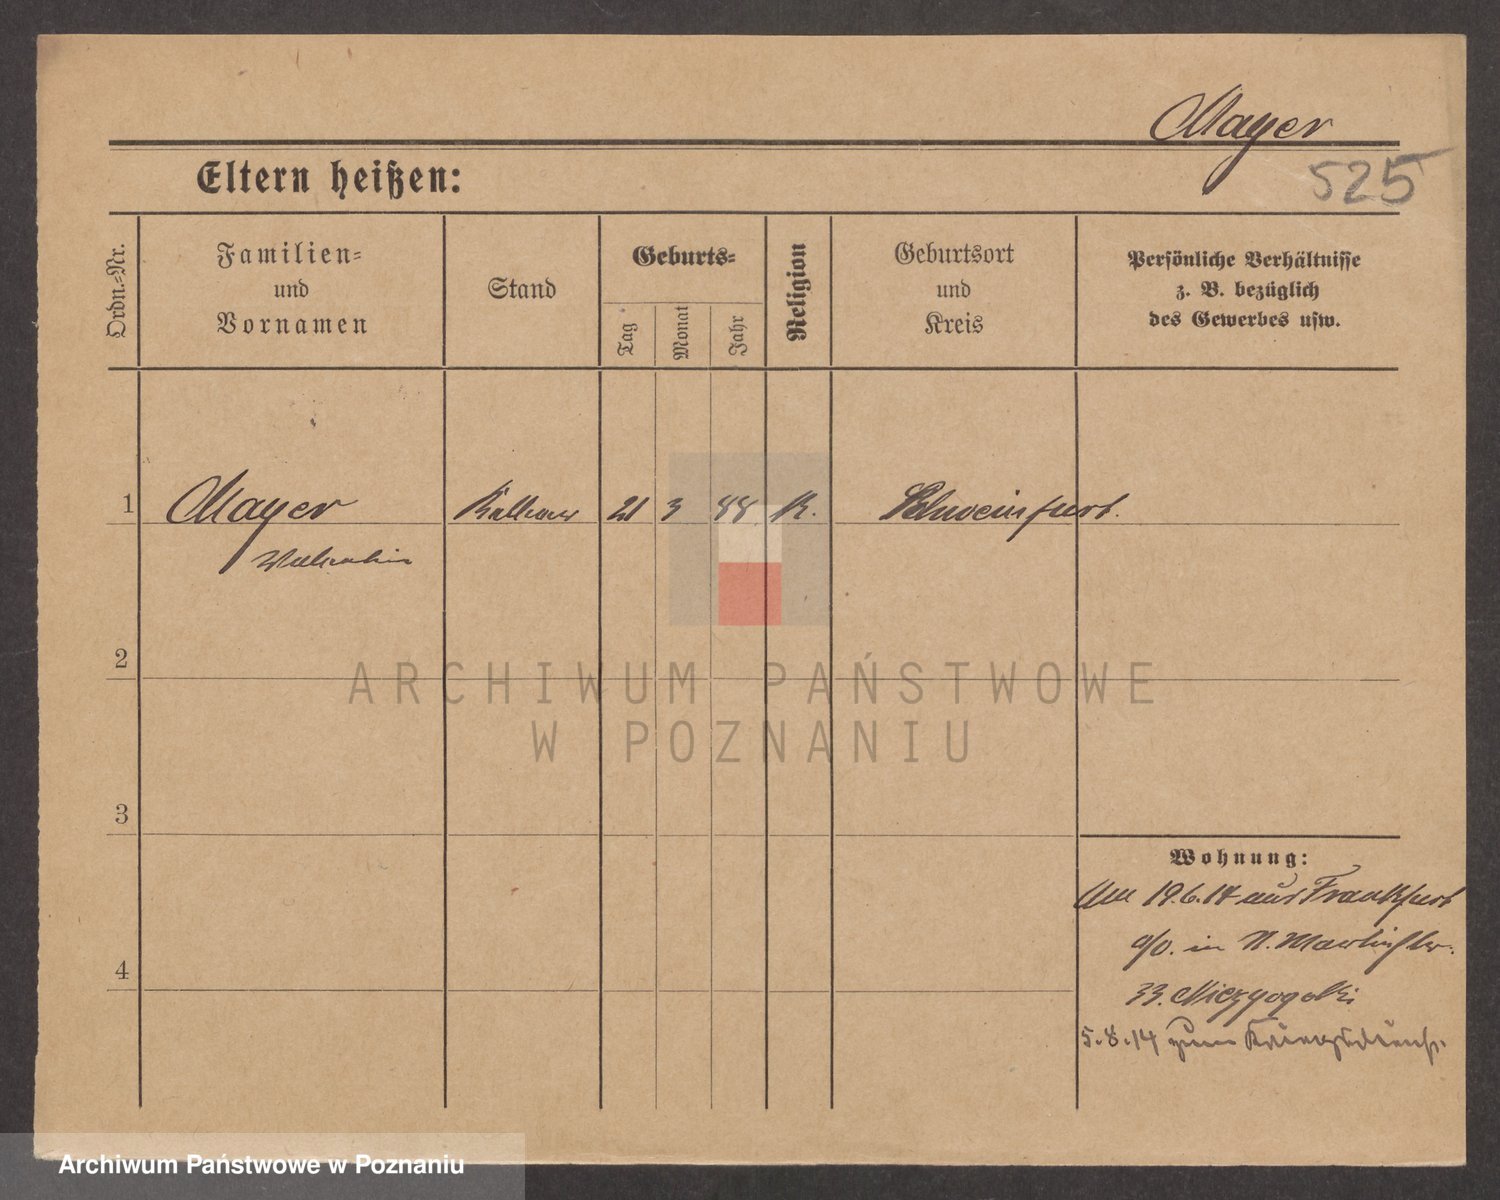 Mayer
525
Eltern heißen:
Ordn.-Nr.
Familien-
und
Vornamen
Stand
Geburts-
Tag
Monat
Jahr
Religion
Geburtsort
und
Kreis
Persönliche Verhältnisse
z. B. bezüglich
des Gewerbes usw.
1
Mayer
Kellner
21 3 88 K.
Schweinfurt.
Valentin
2
3
4
Wohnung:
Am 19.6.14 aus Frankfurt
a/O. in
33.
5.8.14 zum Kriegsdienst
ARCHIWUM PAŃSTWOWE
W POZNANIU
Archiwum Państwowe w Poznaniu